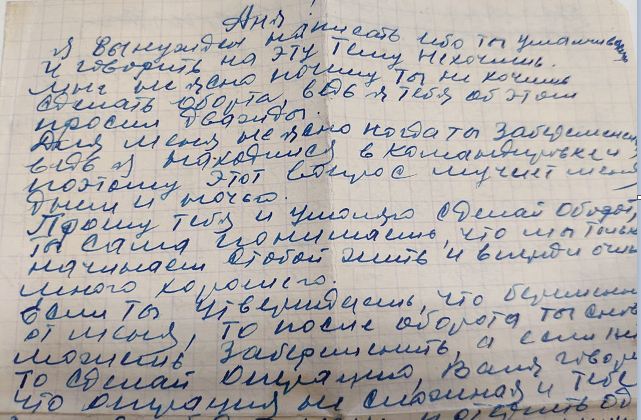 Аня!
Я вынужден написать ибо ты умалчиваешь
и говорить на эту тему нехочишь.
Мне не ясно почему ты не хочишь
сделать оборта, ведь я тебя об этом
просил дважды.
Для меня не ясно когда ты забеременела
ведь я находился в командировке и
поэтому этот вопрос мучает меня
днем и ночью.
Прошу тебя и умоляю сделай оборт,
ты сама понимаешь, что мы только
начинаем стобой жить и впереди очень
много хорошего.
Если ты утверждаешь, что беременна
от меня, то после оборта ты снова
можешь забеременить, а если
то сделай операцию, Ваня говор
что операция не сложная и тебе